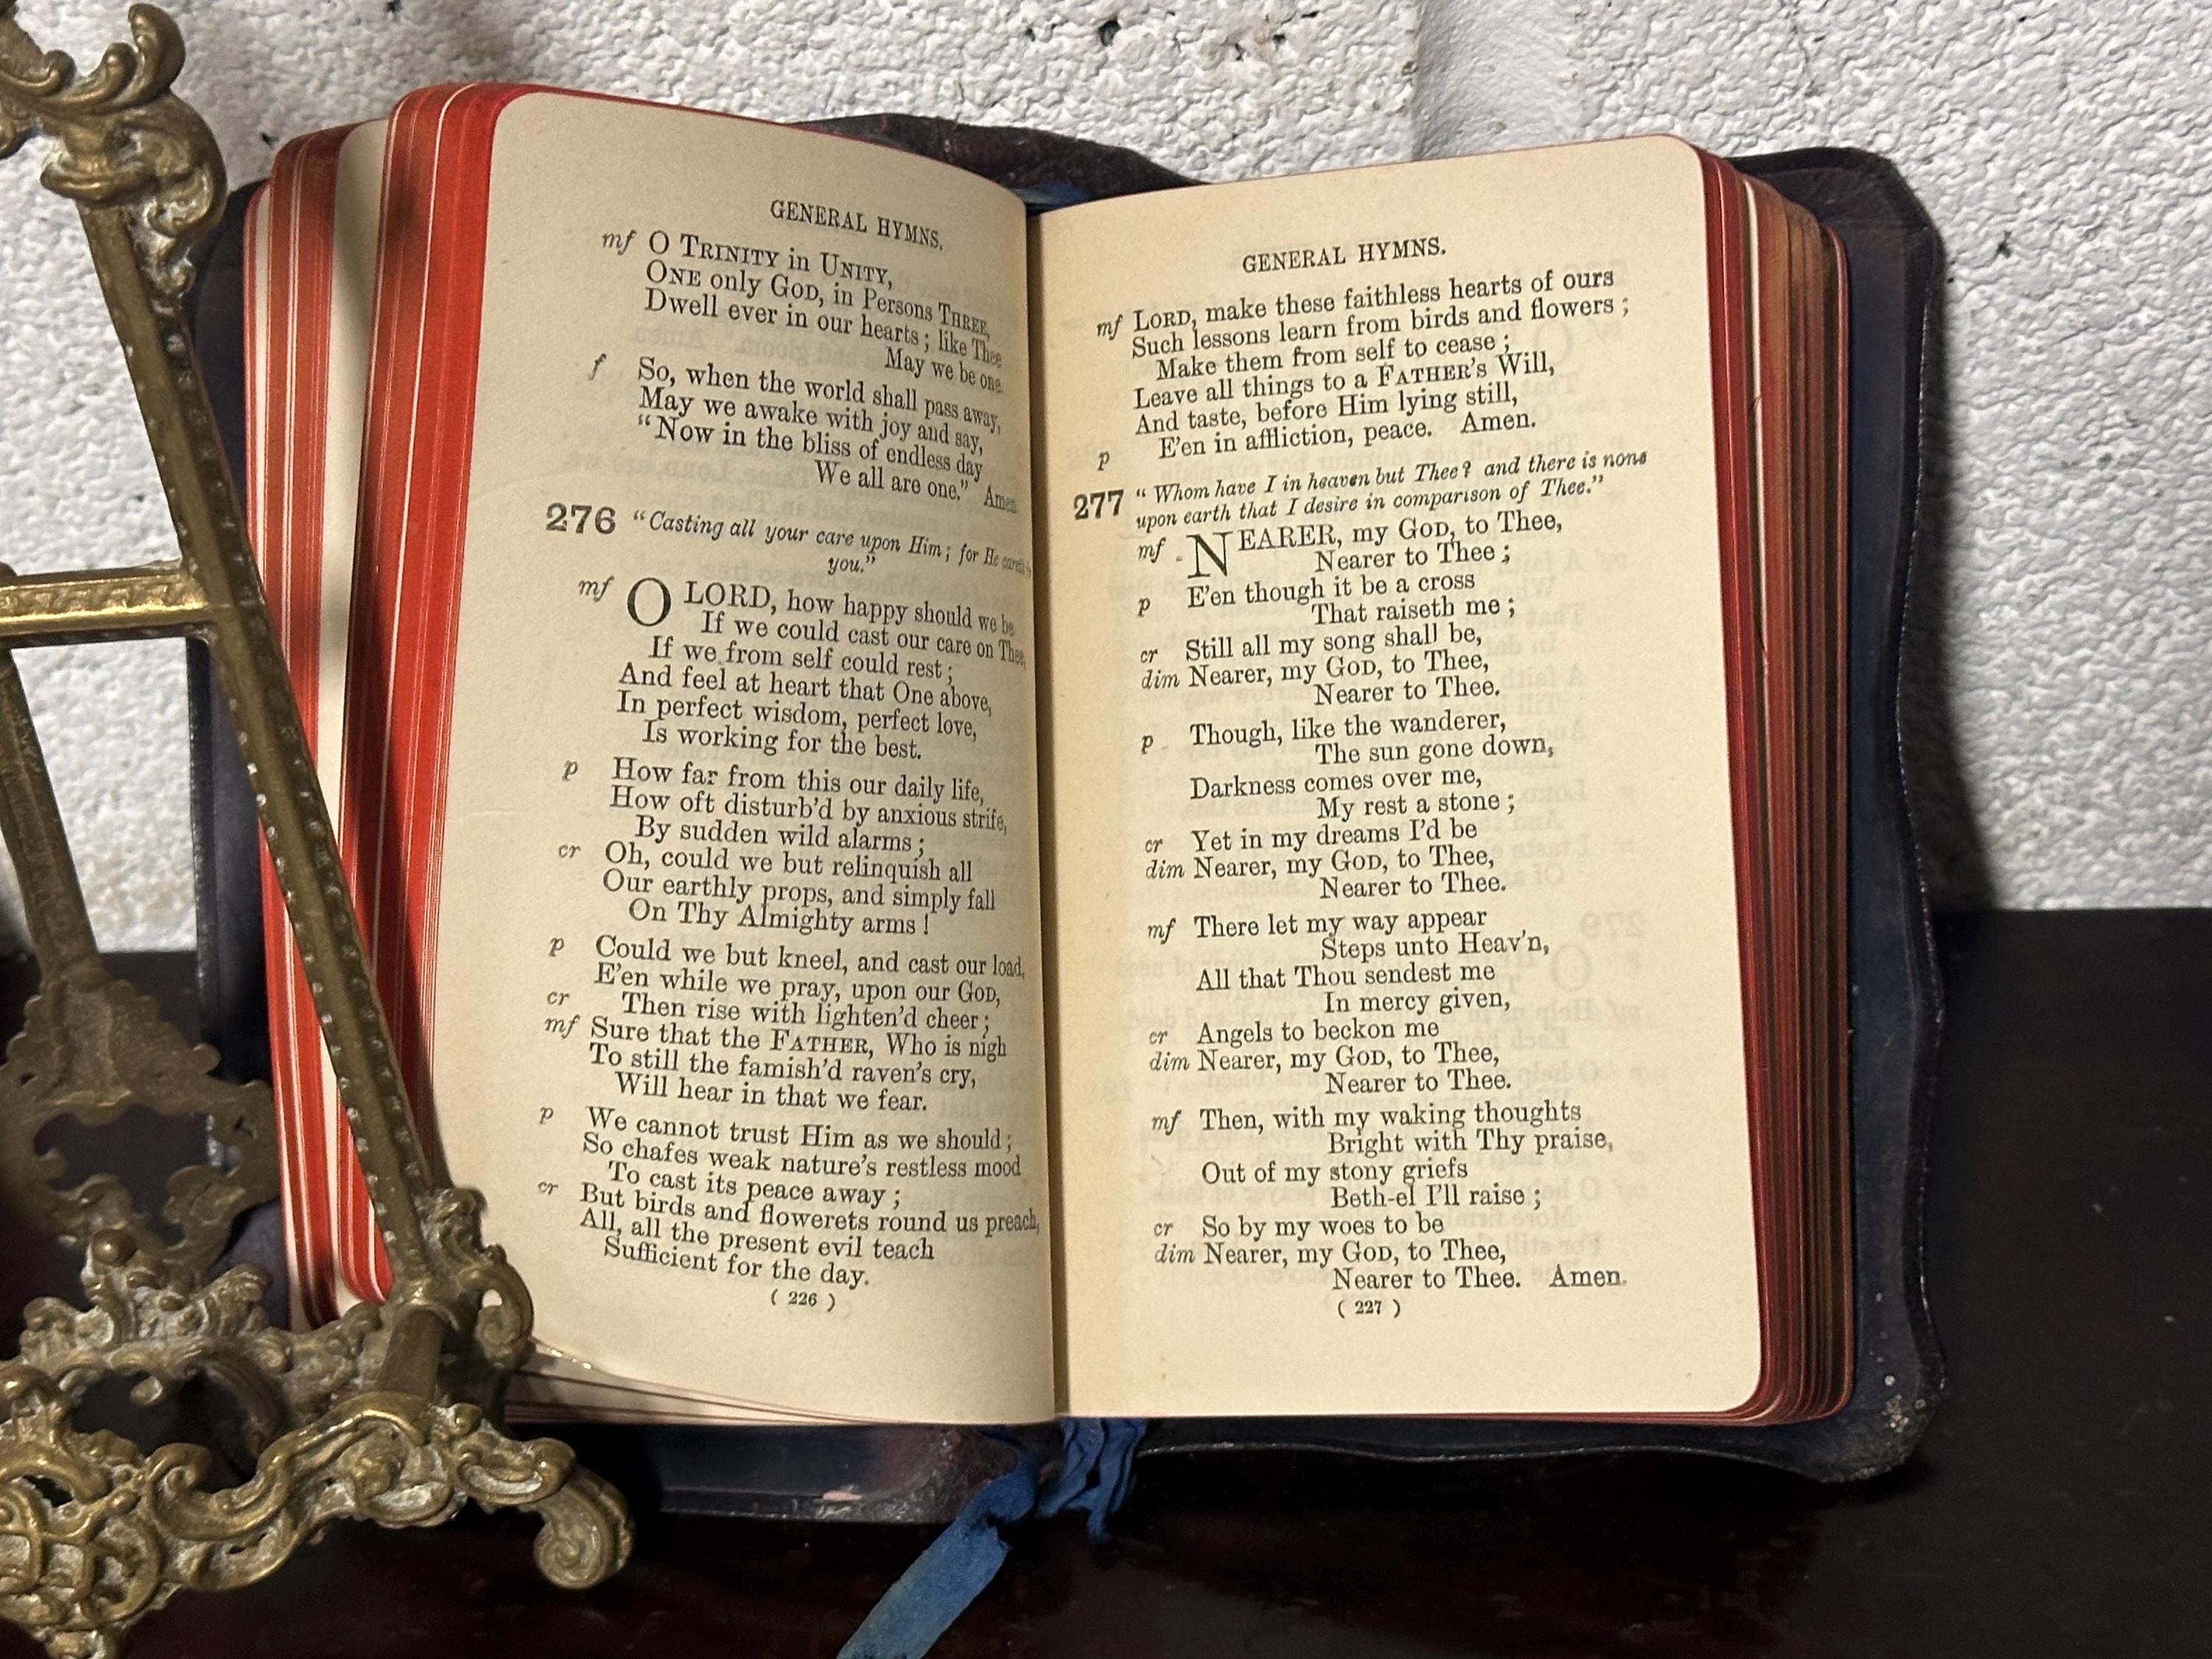 GENERAL HYMNS.
mf O TRINITY in UNITY,
ONE only GOD, in Persons THREE,
Dwell ever in our hearts ; like Thee
May we be one.
f So, when the world shall pass away,
May we awake with joy and say,
“Now in the bliss of endless day
We all are one.” Amen.
276 “Casting all your care upon Him ; for He careth
you.”
mf O LORD, how happy should we be
If we could cast our care on Thee,
If we from self could rest ;
And feel at heart that One above,
In perfect wisdom, perfect love,
Is working for the best.
p How far from this our daily life,
How oft disturb'd by anxious strife,
By sudden wild alarms ;
cr Oh, could we but relinquish all
Our earthly props, and simply fall
On Thy Almighty arms !
p Could we but kneel, and cast our load,
E'en while we pray, upon our GOD,
cr Then rise with lighten'd cheer ;
mf Sure that the FATHER, Who is nigh
To still the famish'd raven's cry,
Will hear in that we fear.
p We cannot trust Him as we should ;
So chafes weak nature's restless mood
To cast its peace away ;
cr But birds and flowerets round us preach,
All, all the present evil teach
Sufficient for the day.
( 226 )
GENERAL HYMNS.
mf LORD, make these faithless hearts of ours
Such lessons learn from birds and flowers ;
Make them from self to cease ;
Leave all things to a FATHER'S Will,
And taste, before Him lying still,
p E'en in affliction, peace. Amen.
277 “Whom have I in heaven but Thee? and there is none
upon earth that I desire in comparison of Thee.”
mf NEARER, my GOD, to Thee,
Nearer to Thee ;
p E'en though it be a cross
That raiseth me ;
cr Still all my song shall be,
dim Nearer, my GOD, to Thee,
Nearer to Thee.
p Though, like the wanderer,
The sun gone down,
Darkness comes over me,
My rest a stone ;
cr Yet in my dreams I'd be
dim Nearer, my GOD, to Thee,
Nearer to Thee.
mf There let my way appear
Steps unto Heav'n,
All that Thou sendest me
In mercy given,
cr Angels to beckon me
dim Nearer, my GOD, to Thee,
Nearer to Thee.
mf Then, with my waking thoughts
Bright with Thy praise,
Out of my stony griefs
Beth-el I'll raise ;
cr So by my woes to be
dim Nearer, my GOD, to Thee,
Nearer to Thee. Amen.
( 227 )